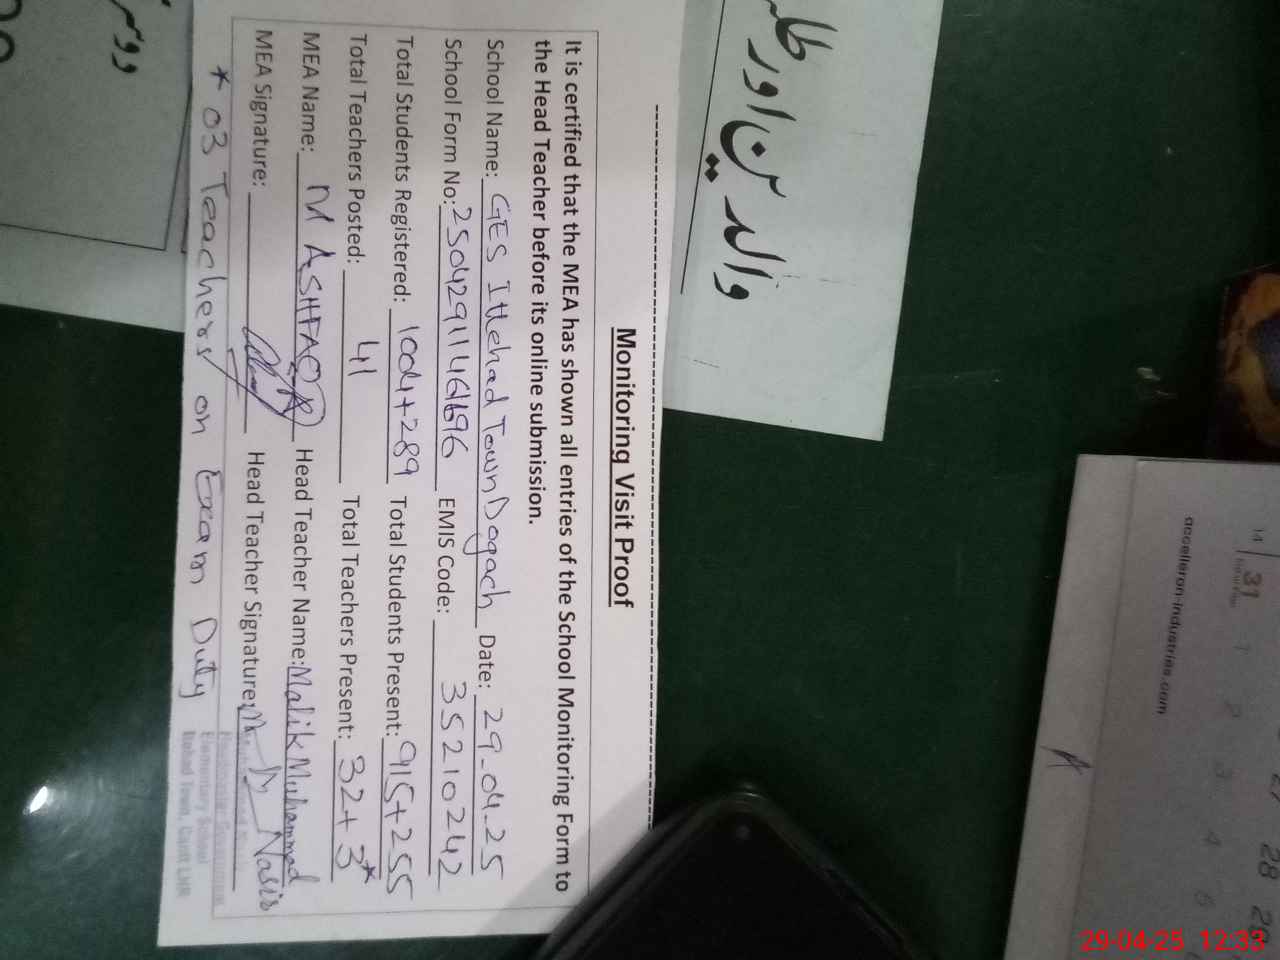 Monitoring Visit Proof
It is certified that the MEA has shown all entries of the School Monitoring Form to
the Head Teacher before its online submission.
School Name: GES Ittehad Town Dogach Date: 29.04.25
School Form No: EMIS Code: 35210242
Total Students Registered: 1004+289 Total Students Present: 915+255
Total Teachers Posted: 41 Total Teachers Present: 32+3*
MEA Name: M ASHFAQ Head Teacher Name: Malik Muhammad
MEA Signature: Head Teacher Signature: Nasir
* 03 Teachers on Exam Duty
Elementary School
Ittehad Town, Cantt LHR
والدین اور
accelleron-industries.com
31
1 2 3 4 5
28
29-04-25 12:33